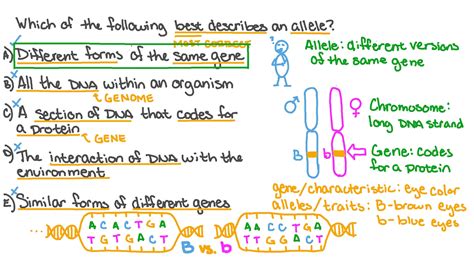 Which of the following best describes an allele?
MOST CORRECT
A) Different forms of the same gene
B) All the DNA within an organism
↑ GENOME
C) A section of DNA that codes for
a protein
↑ GENE
D) The interaction of DNA with the
environment
E) Similar forms of different genes
A C A C T G A
T G T G A C T
B vs. b
A A C C T G A
T T G G A C T
Allele: different versions
of the same gene
♂ ♀
Chromosome:
long DNA strand
B b
Gene: codes
for a protein
gene/characteristic: eye color
alleles/traits: B-brown eyes
b-blue eyes